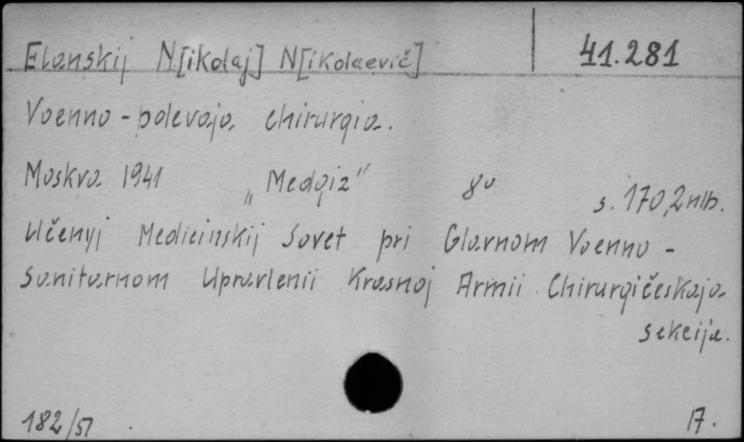 Elanskij N[ikolaj] N[ikolaevič] 41.281
Voenno-polevaja chirurgia.
Moskva 1941 „Medgiz" 8° s. 170,2 nlb.
Učenyj Medicinskij Sovet pri Glavnom Voenno-
Sanitarnom Upravlenii Krasnoj Armii Chirurgičeskaja
sekcija.
182/51 A.